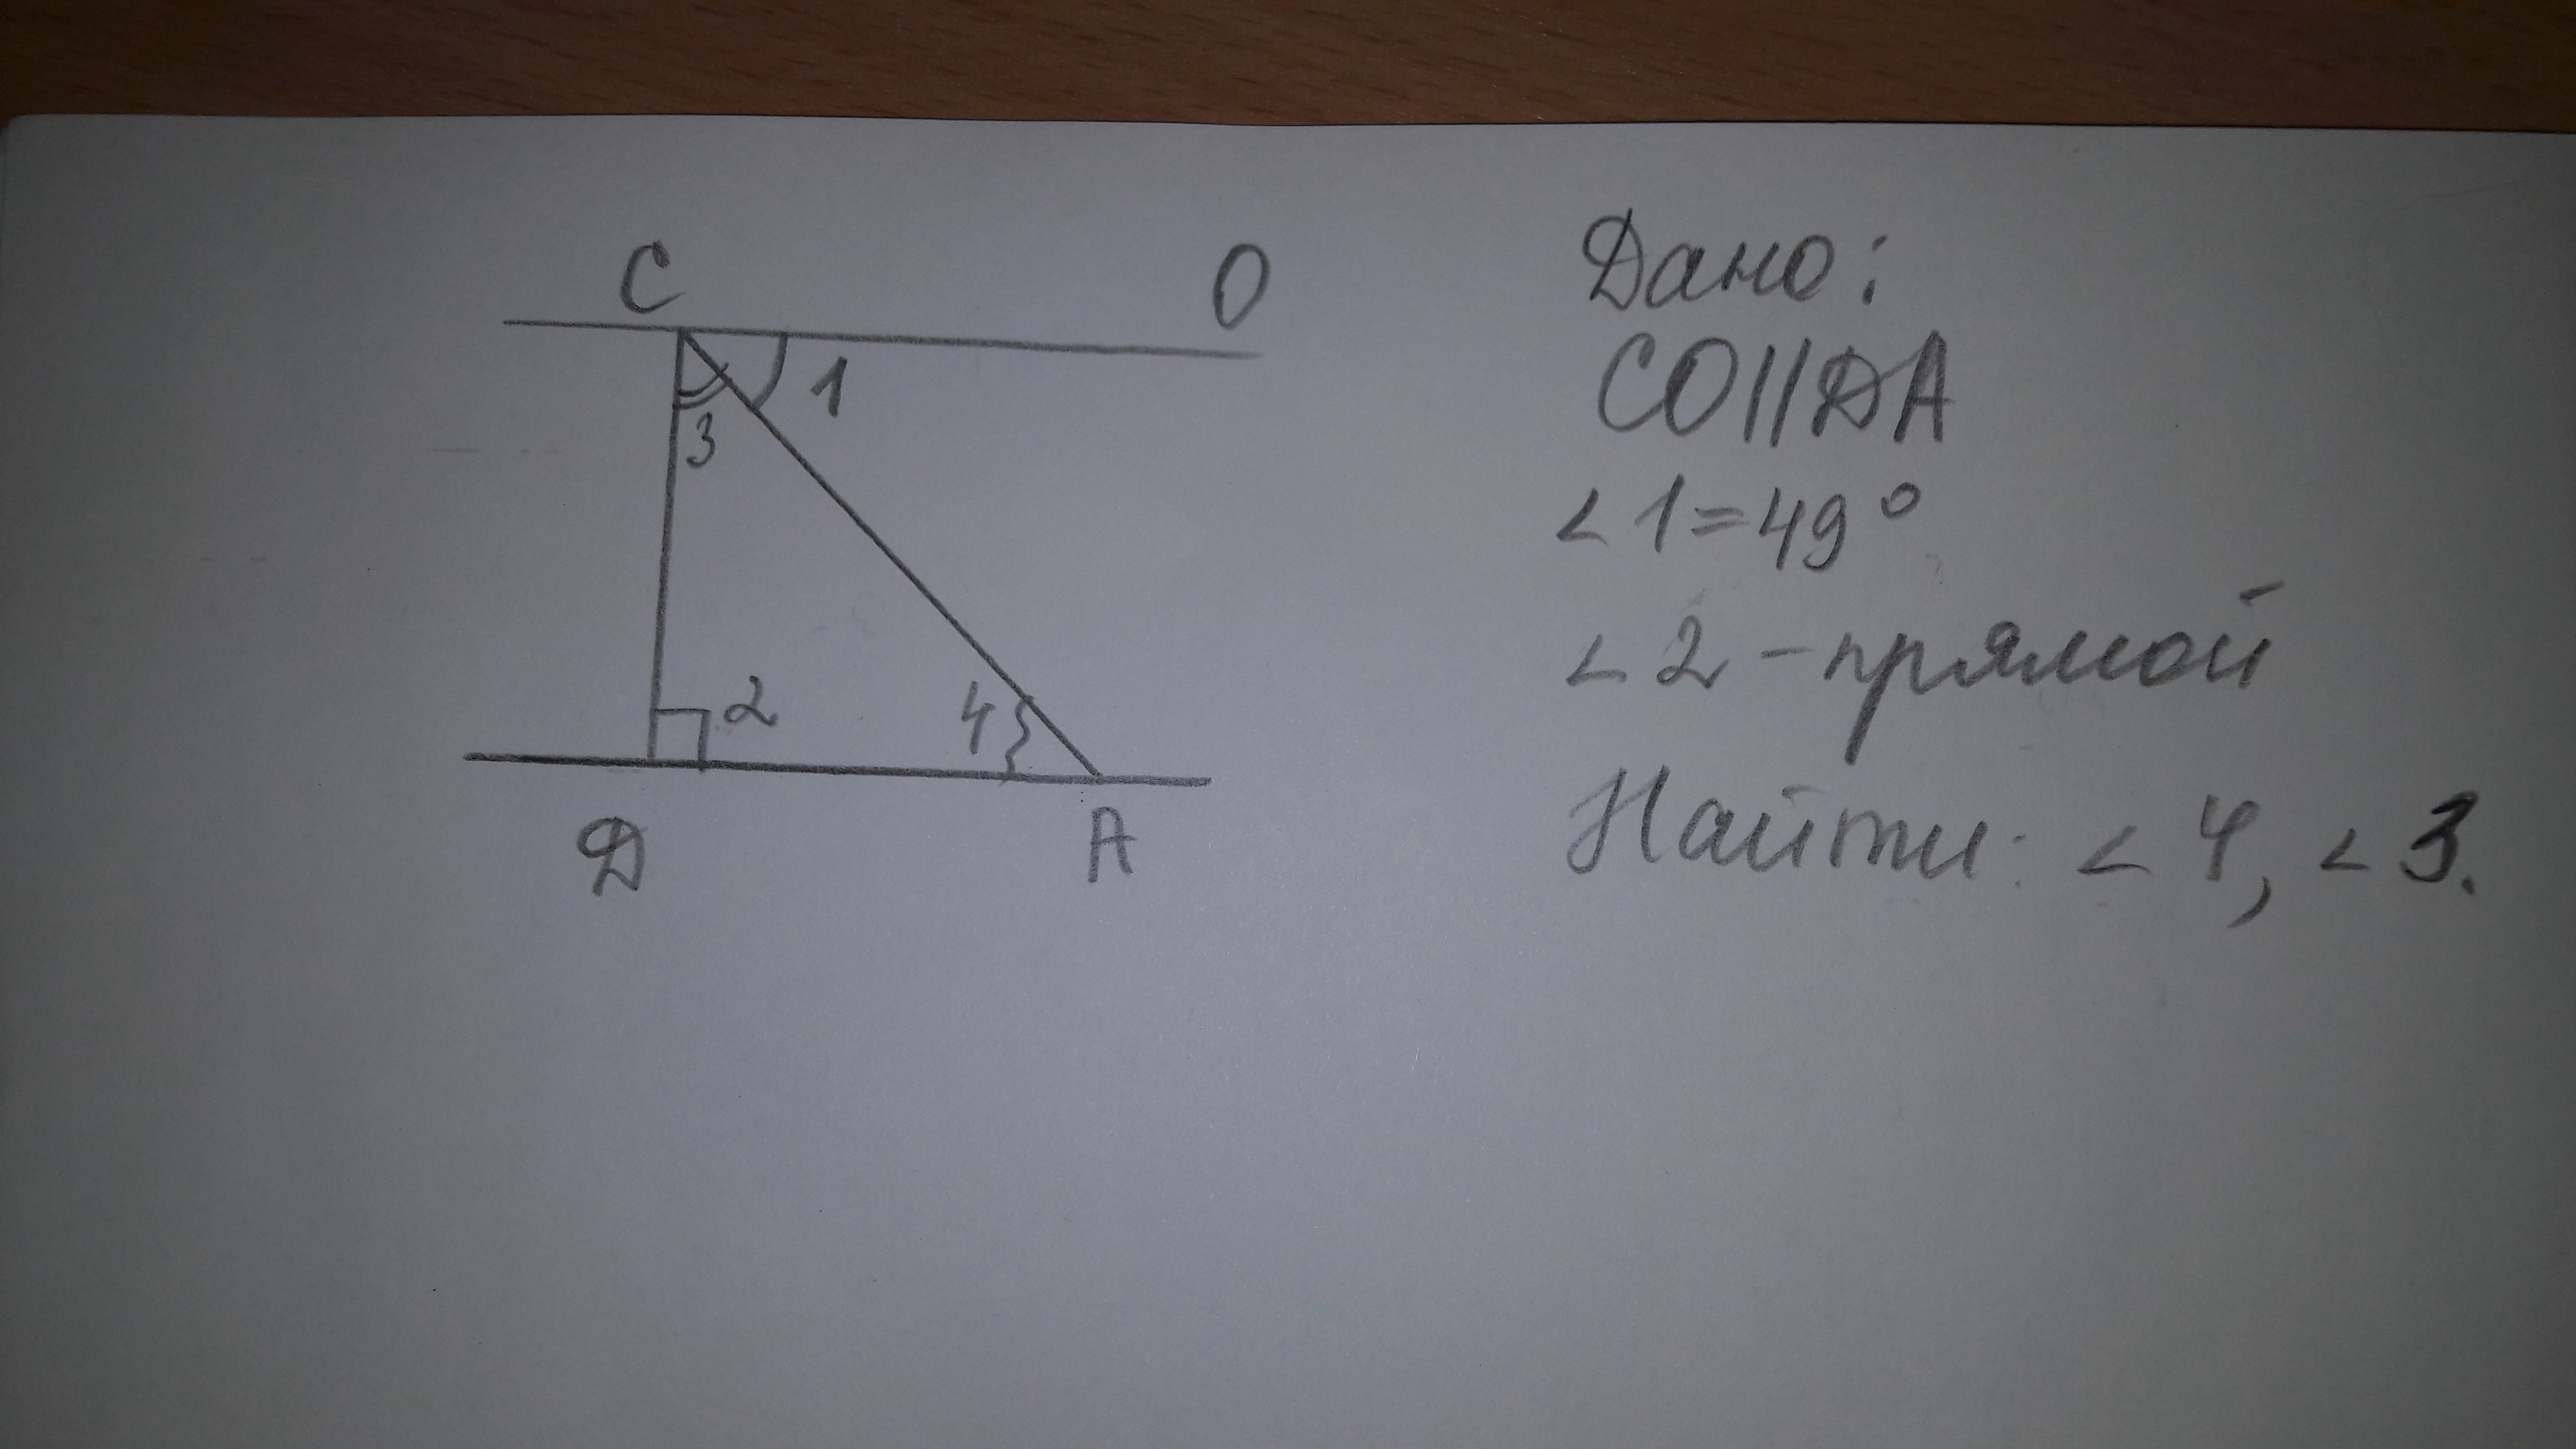 C O
1
3
2
4
D A
Дано:
CO||DA
<1=49°
<2-прямой
Найти: <4, <3.